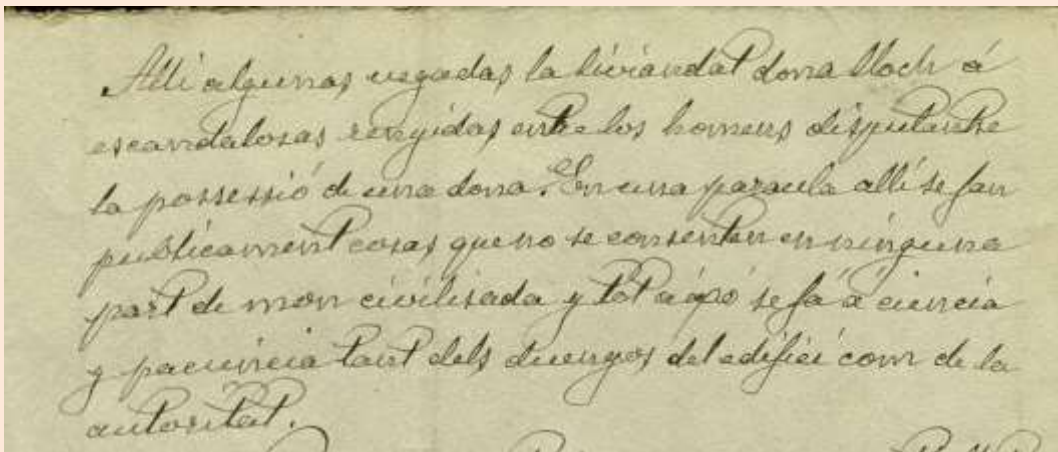 Alli algunas vegadas la liviandat dona lloch á
escandalosas renyidas entre los homens disputantse
la possessió de una dona. En una paraula allí se fan
publicament cosas que no se consenten en ninguna
part de mon civilisada y tot aҫó se fá á ciencia
y paciencia tant dels duenyos del edifici com de la
autoritat.